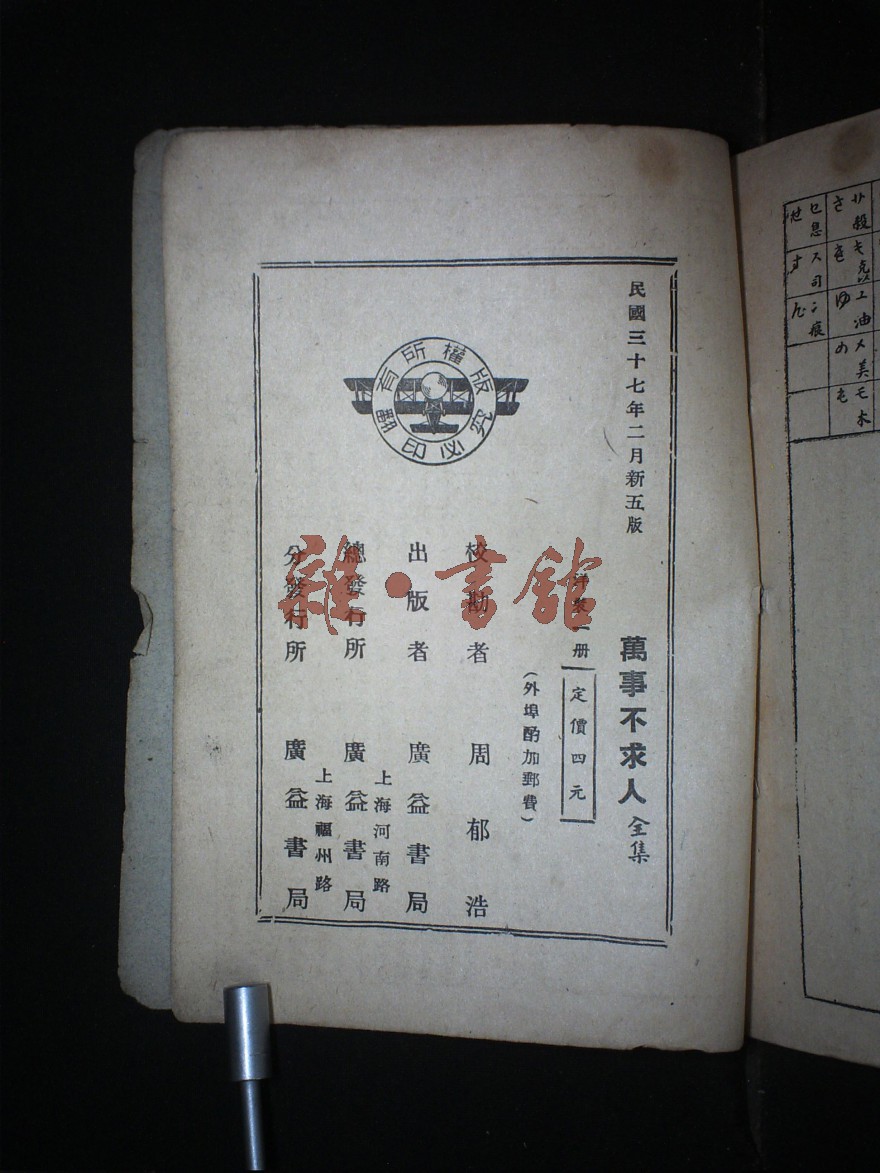 民國三十七年二月新五版
萬事不求人 全集
洋裝一册 定價四元
(外埠酌加郵費)
校勘者 周郁浩
出版者 廣益書局
上海河南路
總發行所 廣益書局
上海福州路
分發行所 廣益書局
版權所有
翻印必究
雜·書館
サ殺 キ克以 ユ油 メ美 モ木
さ き ゆ め も
セ息 ス司 ン痕
せ す ん